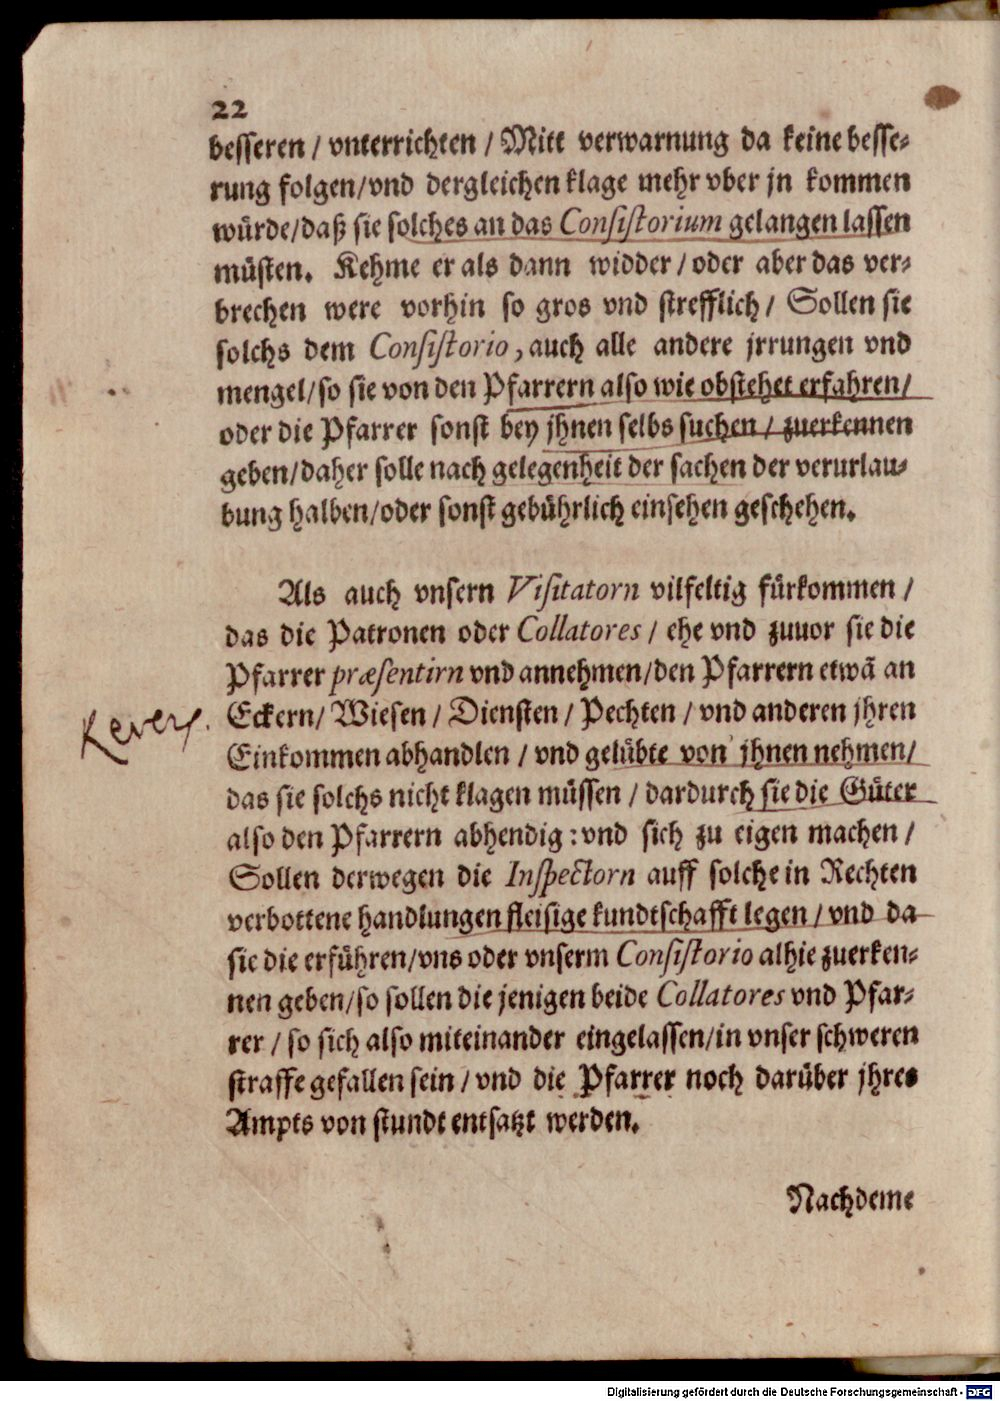 22
besseren / vnterrichten / Mitt verwarnung da keine besse-
rung folgen/vnd dergleichen klage mehr vber jn kommen
würde/daß sie solches an das Consistorium gelangen lassen
müsten. Kehme er als dann widder / oder aber das ver-
brechen were vorhin so gros vnd strefflich / Sollen sie
solchs dem Consistorio, auch alle andere jrrungen vnd
mengel/so sie von den Pfarrern also wie obstehet erfahren/
oder die Pfarrer sonst bey jhnen selbs suchen / zuerkennen
geben/daher solle nach gelegenheit der sachen der verurlau-
bung halben/oder sonst gebührlich einsehen geschehen.
Als auch vnsern Visitatorn vilfeltig fürkommen /
das die Patronen oder Collatores / ehe vnd zuuor sie die
Pfarrer præsentirn vnd annehmen/den Pfarrern etwã an
Eckern/ Wiesen / Diensten / Pechten / vnd anderen jhren
Einkommen abhandlen / vnd gelübte von jhnen nehmen/
das sie solchs nicht klagen müssen / dardurch sie die Güter
also den Pfarrern abhendig : vnd sich zu eigen machen /
Sollen derwegen die Inspectorn auff solche in Rechten
verbottene handlungen fleisige kundtschafft legen / vnd da
sie die erführen/vns oder vnserm Consistorio alhie zuerken-
nen geben/so sollen die jenigen beide Collatores vnd Pfar-
rer / so sich also miteinander eingelassen/in vnser schweren
straffe gefallen sein / vnd die Pfarrer noch darüber jhres
Ampts von stundt entsatzt werden.
Nachdeme
Digitalisierung gefördert durch die Deutsche Forschungsgemeinschaft - DFG